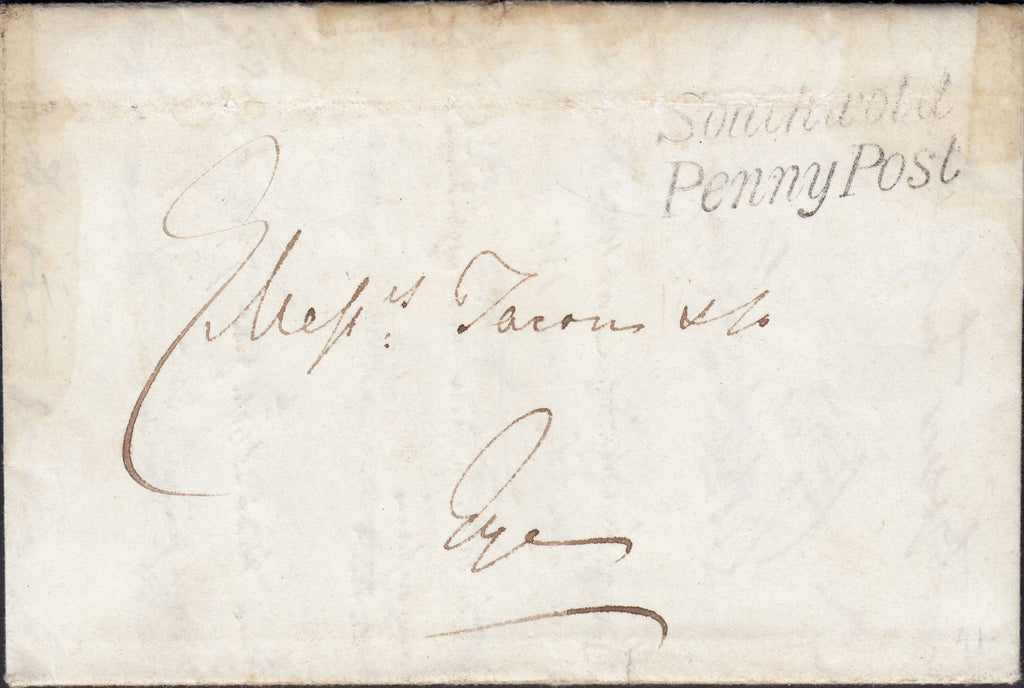 Southwold
Penny Post
Messrs Tacon & Co
Eye